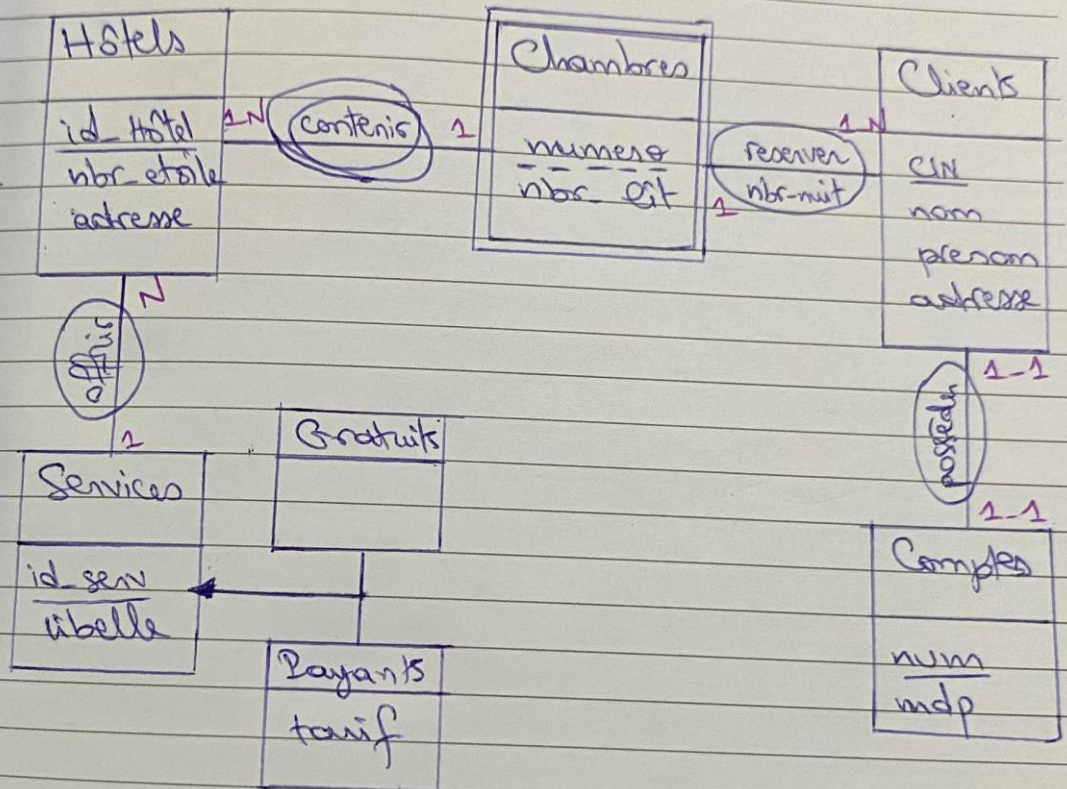 Hôtels
id_Hôtel
nbr_etoile
adresse
1N
contenir
1
Chambres
numero
nbr_lit
1
reserver
nbr-nuit
1N
Clients
CIN
nom
prenom
adresse
N
offrir
1
Services
id_serv
libelle
Gratuits
Payants
tarif
1-1
posseder
1-1
Comptes
num
mdp